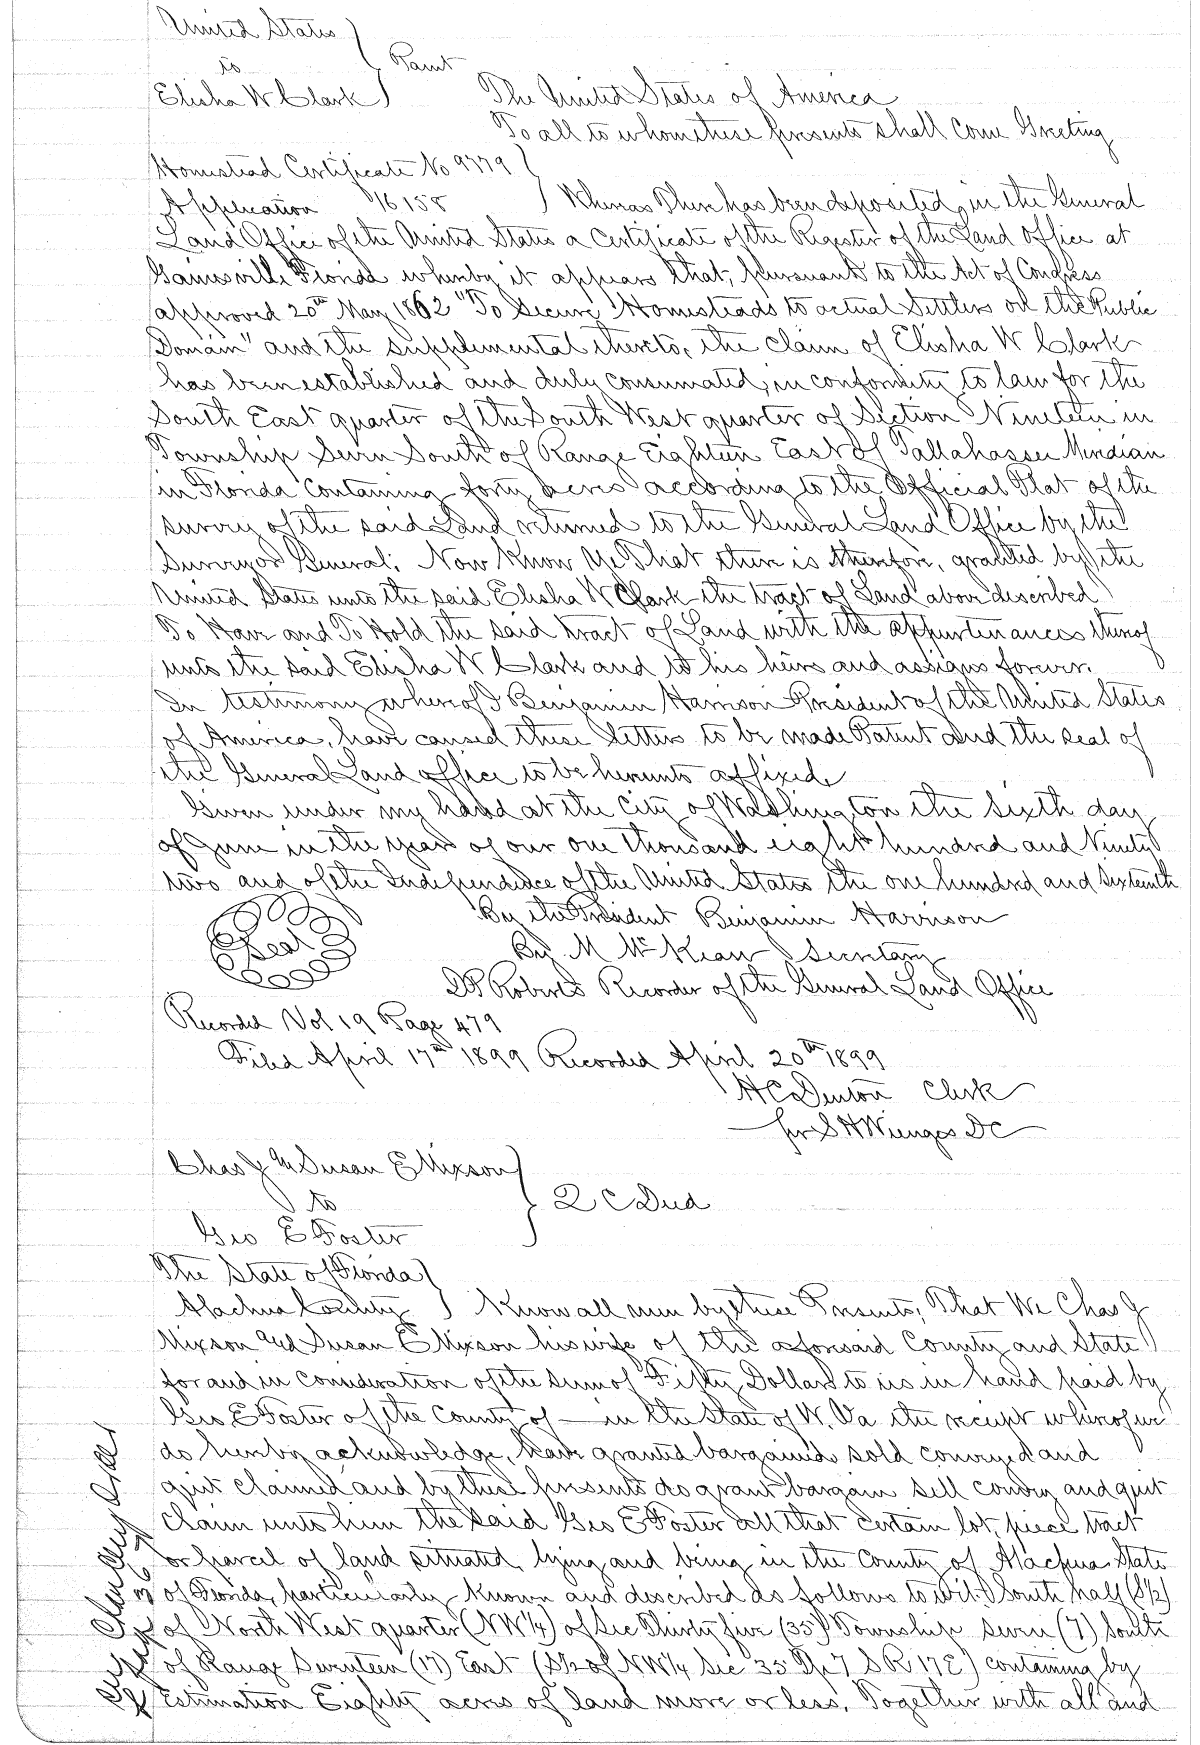 United States
to
Elisha W Clark
Patent
The United States of America
To all to whom these presents shall come Greeting
Homestead Certificate No 9779
Application 16158 Whereas There has been deposited in the General
Land Office of the United States a Certificate of the Register of the Land Office at
Gainesville Florida whereby it appears that, pursuant to the Act of Congress
approved 20th May 1862 "To Secure Homesteads to actual Settlers on the Public
Domain" and the supplemental thereto, the claim of Elisha W Clark
has been established and duly consumated, in conformity to law for the
South East quarter of the South West quarter of Section Nineteen in
Township Seven South of Range Eighteen East of Tallahassee Meridian
in Florida containing forty acres according to the Official Plat of the
survey of the said Land returned to the General Land Office by the
Surveyor General: Now Know Ye That there is therefore, granted by the
United States unto the said Elisha W Clark the tract of Land above described
To Have and To Hold the said tract of Land with the appurtenances thereof
unto the said Elisha W Clark and to his heirs and assigns forever.
In testimony whereof I Benjamin Harrison President of the United States
of America, have caused these letters to be made Patent and the seal of
the General Land office to be hereunto affixed
Given under my hand at the City of Washington the sixth day
of June in the year of our one thousand eight hundred and Ninety
two and of the Independence of the United States the one hundred and sixteenth
By the President Benjamin Harrison
Seal
By M McKean Secretary
D P Roberts Recorder of the General Land Office
Recorded Vol 19 Page 479
Filed April 17th 1899 Recorded April 20th 1899
H C Denton Clerk
per S H Wienges D C
Chas J & Susan E Mixson
to
Q C Deed
Geo E Foster
The State of Florida
Alachua County Know all men by these Presents, That We Chas J
Mixson and Susan E Mixson his wife of the aforesaid County and State
for and in consideration of the sum of Fifty Dollars to us in hand paid by
Geo E Foster of the County of — in the State of W. Va the receipt whereof we
do hereby acknowledge, have granted bargained sold conveyed and
quit claimed and by these presents do grant bargain sell convey and quit
claim unto him the said Geo E Foster all that certain lot, piece tract
or parcel of land situated, lying and being in the County of Alachua State
of Florida, particularly known and described as follows to wit: South half (S½)
of North West quarter (NW¼) of Sec Thirty five (35) Township seven (7) South
of Range Seventeen (17) East (S½ of NW¼ Sec 35 Tp 7 S R 17 E) containing by
Estimation Eighty acres of land more or less. Together with all and